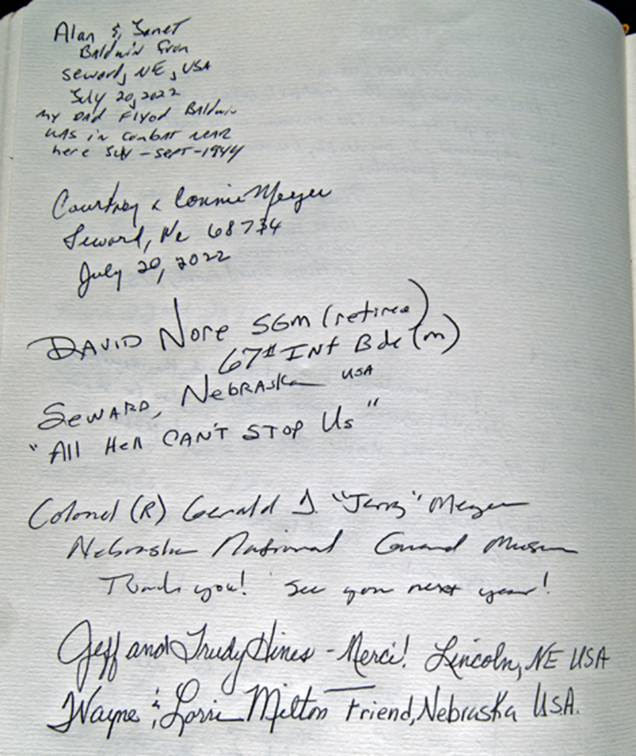 Alan & Janet
Baldwin from
Seward, NE, USA
July 20, 2022
my Dad Flyod Baldwin
was in combat near
here July - Sept - 1944
Courtney & Connie Meyer
Seward, Ne 68734
July 20, 2022
DAVID Nore SGM (retired)
67th INf Bde (m)
SeWARD, NebRASka USA
"All Hell CAN'T STOP Us"
Colonel (R) Gerald D. "Jerry" Meyer
Nebraska National Guard Museum
Thank you! See you next year!
Jeff and Trudy Hines - Merci! Lincoln, NE USA
Wayne & Lorri Milton Friend, Nebraska U.S.A.